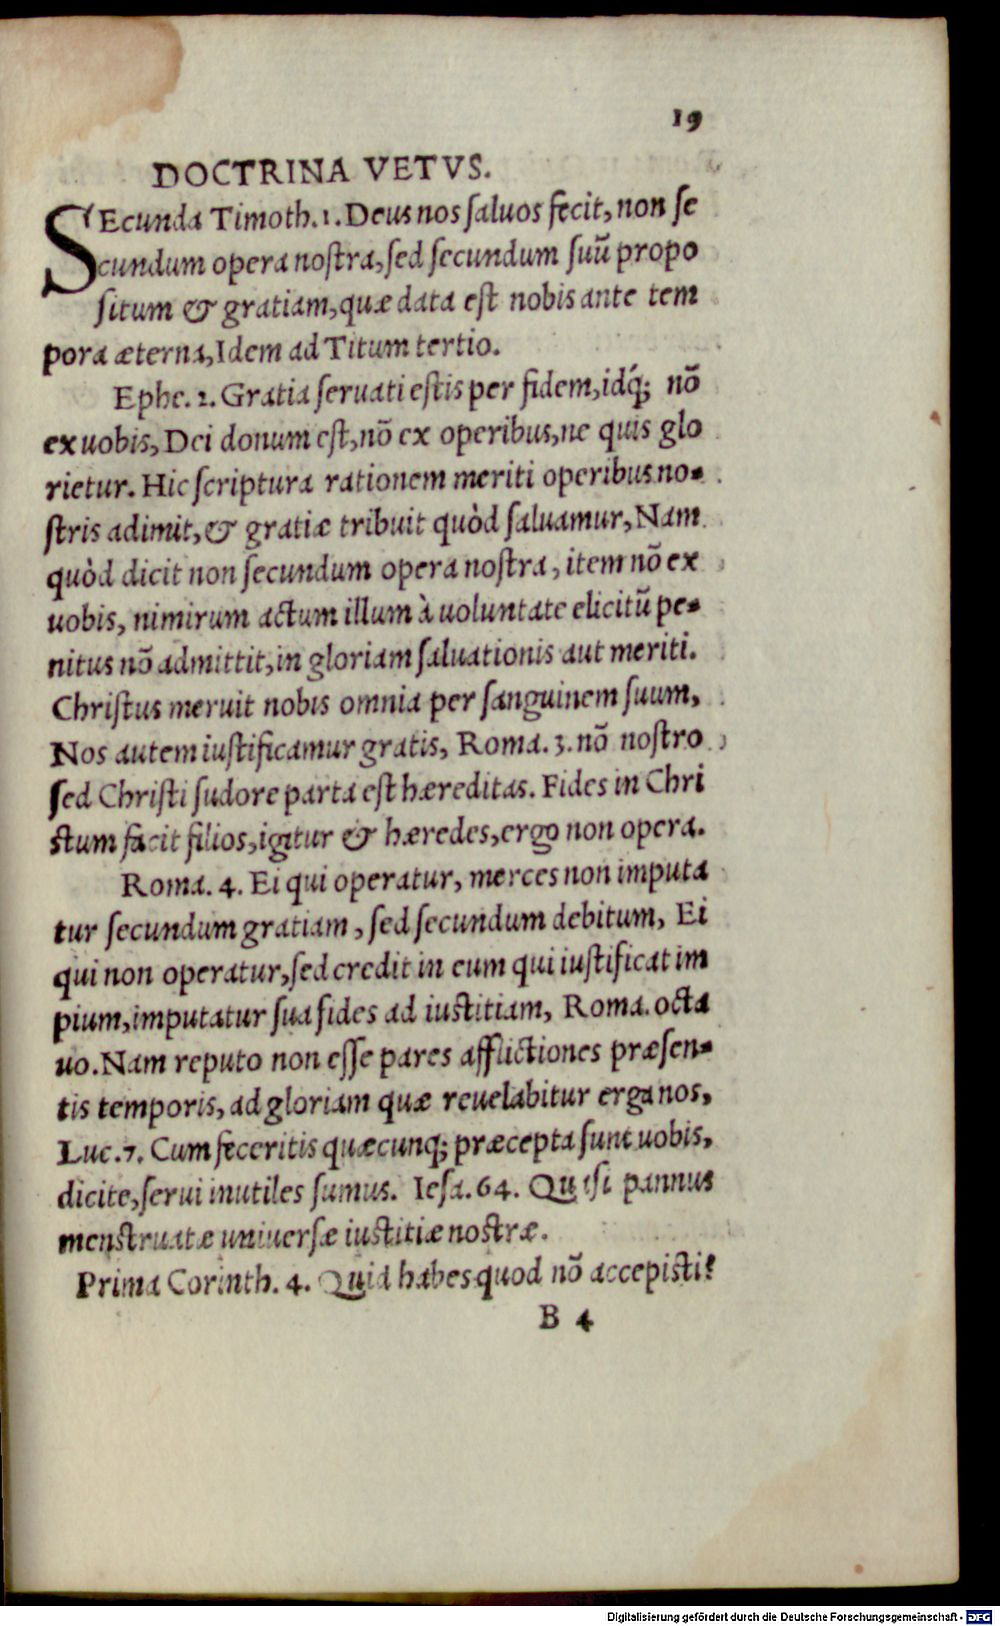 19
DOCTRINA VETVS.
SEcunda Timoth.1.Deus nos saluos fecit, non se
cundum opera nostra, sed secundum suū propo
situm & gratiam, quæ data est nobis ante tem
pora æterna, Idem ad Titum tertio.
Ephe. 2. Gratia seruati estis per fidem, idq́; nō
ex uobis, Dei donum est, nō ex operibus, ne quis glo
rietur. Hic scriptura rationem meriti operibus no-
stris adimit, & gratiæ tribuit quòd saluamur, Nam
quòd dicit non secundum opera nostra, item nō ex
uobis, nimirum actum illum à uoluntate elicitū pe-
nitus nō admittit, in gloriam saluationis aut meriti.
Christus meruit nobis omnia per sanguinem suum,
Nos autem iustificamur gratis, Roma. 3. nō nostro
sed Christi sudore parta est hæreditas. Fides in Chri
stum facit filios, igitur & hæredes, ergo non opera.
Roma. 4. Ei qui operatur, merces non imputa
tur secundum gratiam, sed secundum debitum, Ei
qui non operatur, sed credit in eum qui iustificat im
pium, imputatur sua fides ad iustitiam, Roma. octa
uo. Nam reputo non esse pares afflictiones præsen-
tis temporis, ad gloriam quæ reuelabitur erga nos,
Luc. 7. Cum feceritis quæcunq; præcepta sunt uobis,
dicite, serui inutiles sumus. Iesa. 64. Quasi pannus
menstruatæ uniuersæ iustitiæ nostræ.
Prima Corinth. 4. Quid habes quod nō accepisti?
B 4
Digitalisierung gefördert durch die Deutsche Forschungsgemeinschaft - DFG